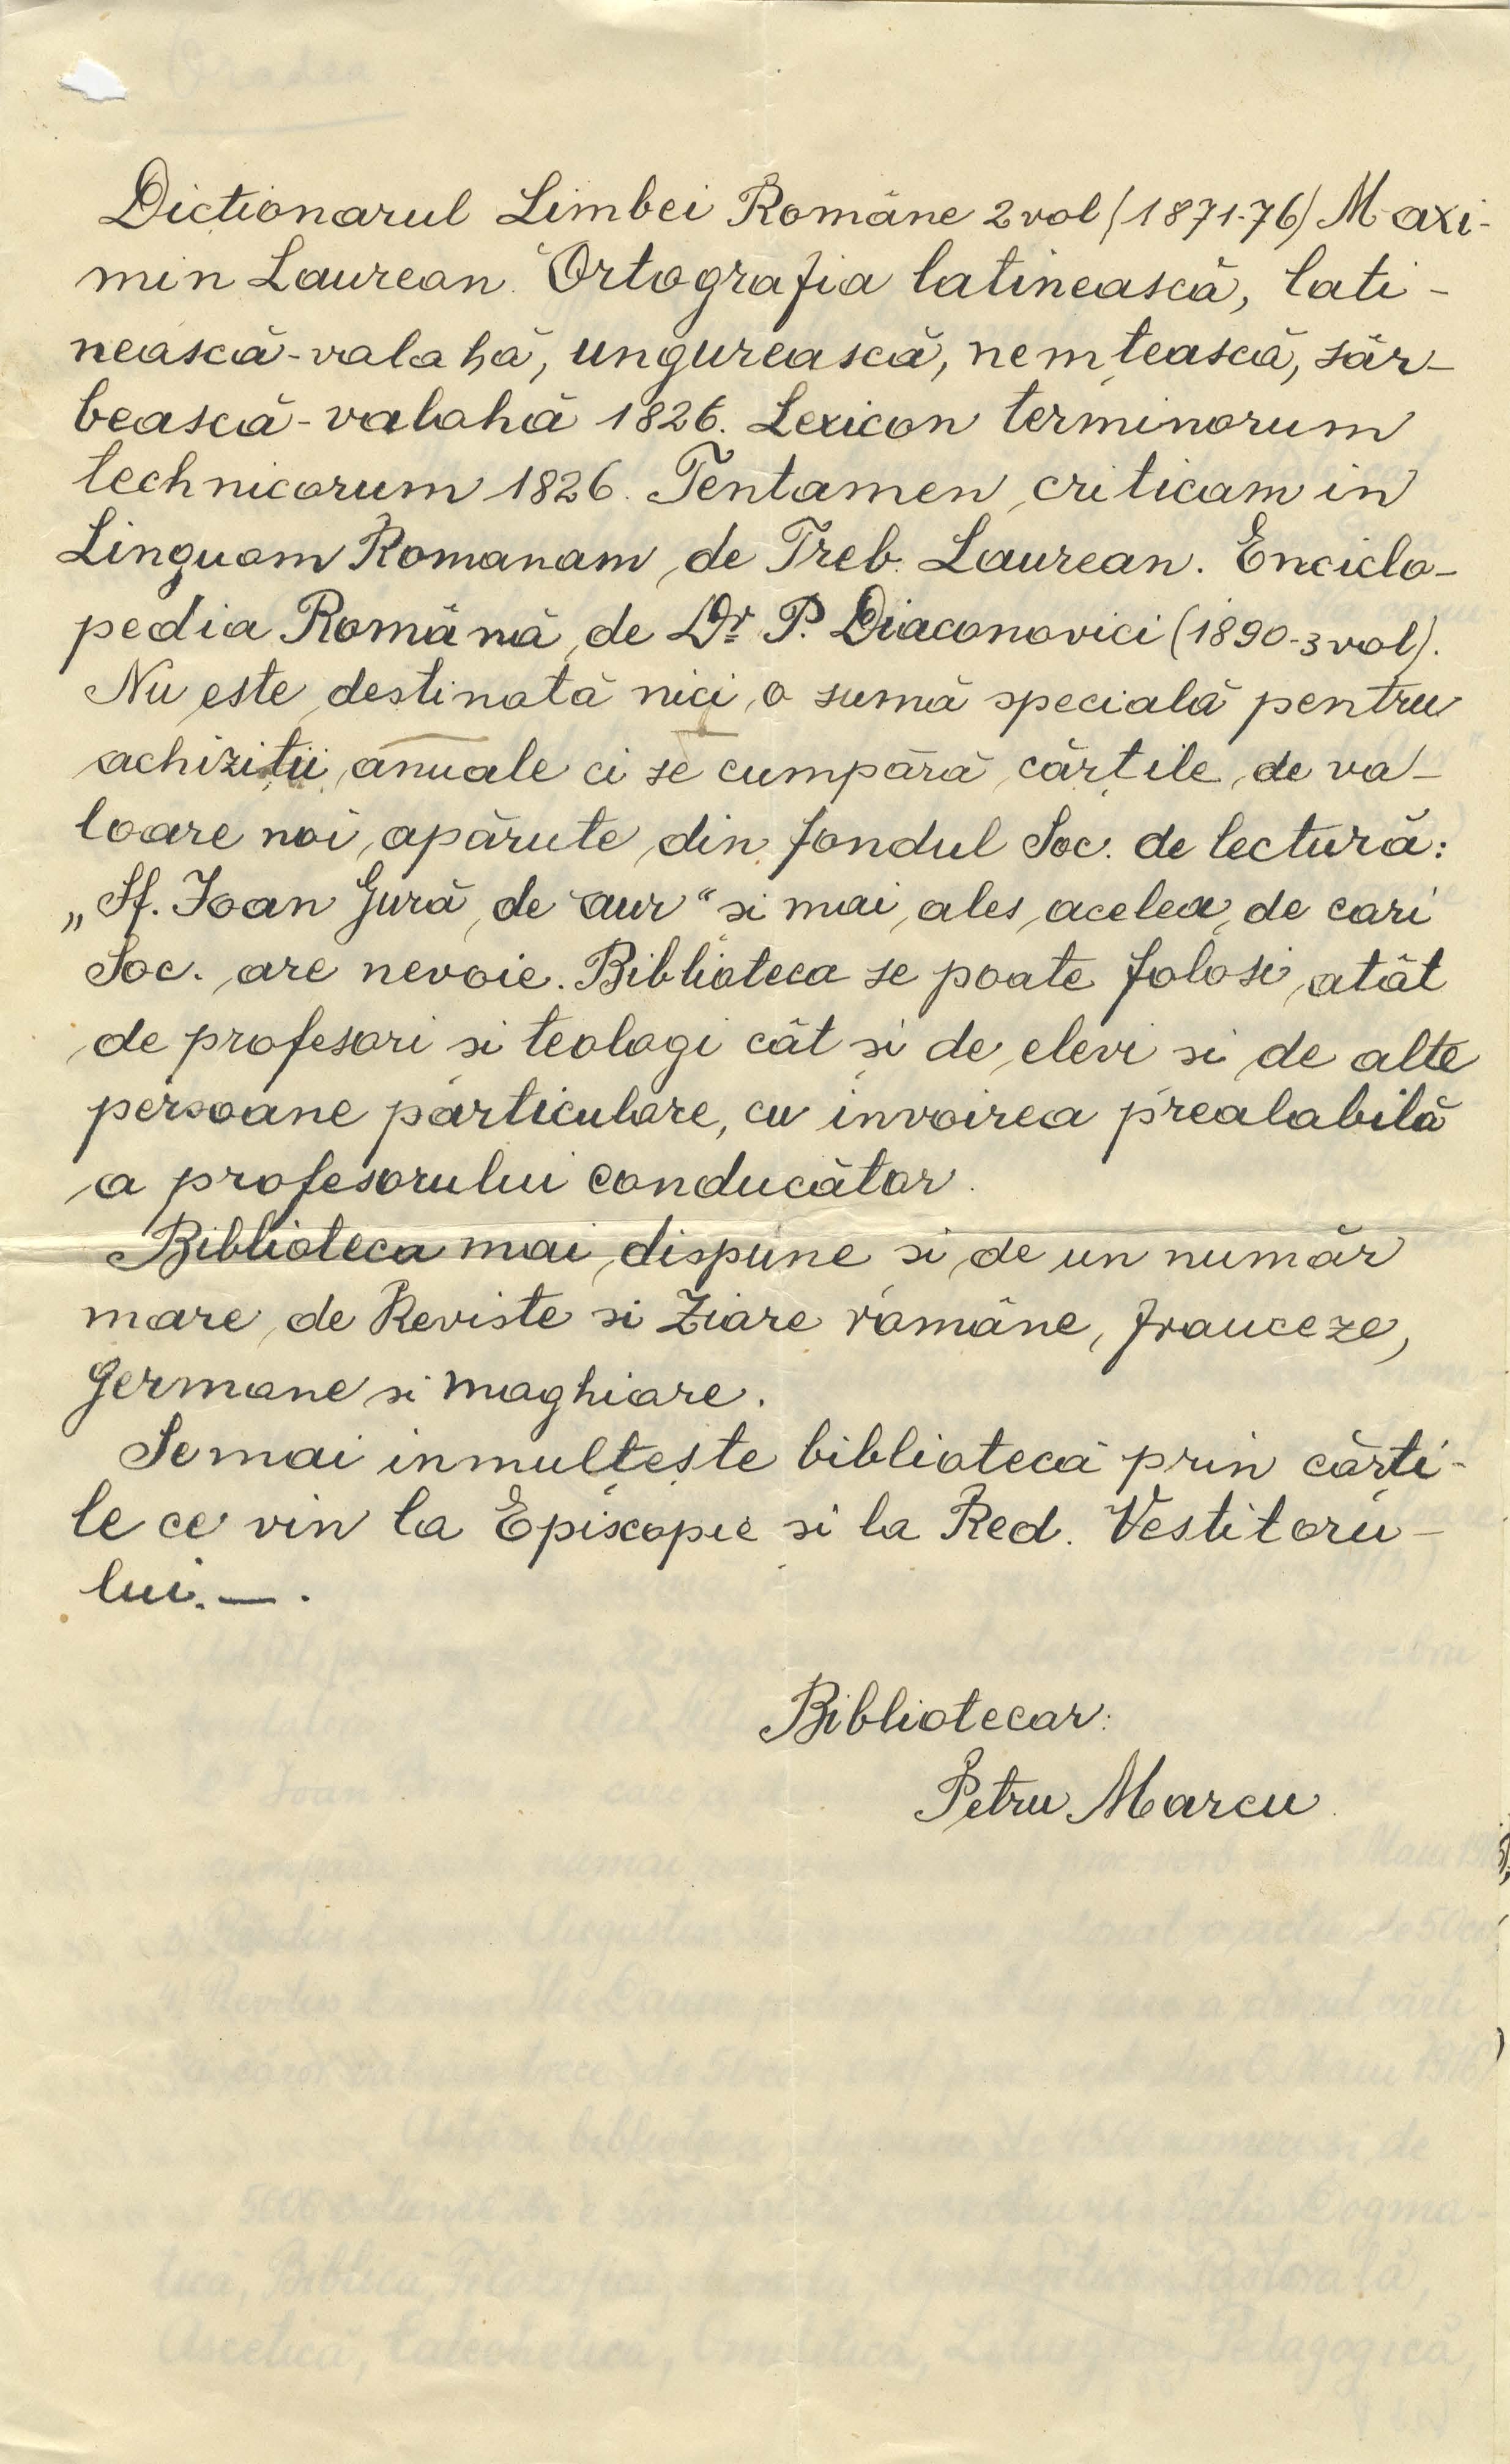 Dicționarul Limbei Române 2 vol (1871-76) Maxi-
min Laurean. Ortografia latinească, lati-
nească-valahă, ungurească, nemțească, sâr-
bească-valahă 1826. Lexicon terminorum
technicorum 1826. Tentamen criticam in
Linguam Romanam de Treb. Laurean. Enciclo-
pedia Română de Dr. P. Diaconovici (1890-3 vol).
Nu este destinată nici o sumă specială pentru
achiziții anuale ci se cumpără cărțile de va-
loare noi apărute din fondul Soc. de lectură:
„Sf. Ioan Gură de aur“ și mai ales acelea de cari
Soc. are nevoie. Biblioteca se poate folosi atât
de profesori si teologi cât și de elevi si de alte
persoane particulare, cu invoirea prealabilă
a profesorului conducător.
Biblioteca mai dispune si de un număr
mare de Reviste si Ziare române, franceze,
germane si maghiare.
Se mai inmulțește biblioteca prin cărți-
le ce vin la Episcopie si la Red. Vestitoru-
lui. — .
Bibliotecar:
Petru Marcu